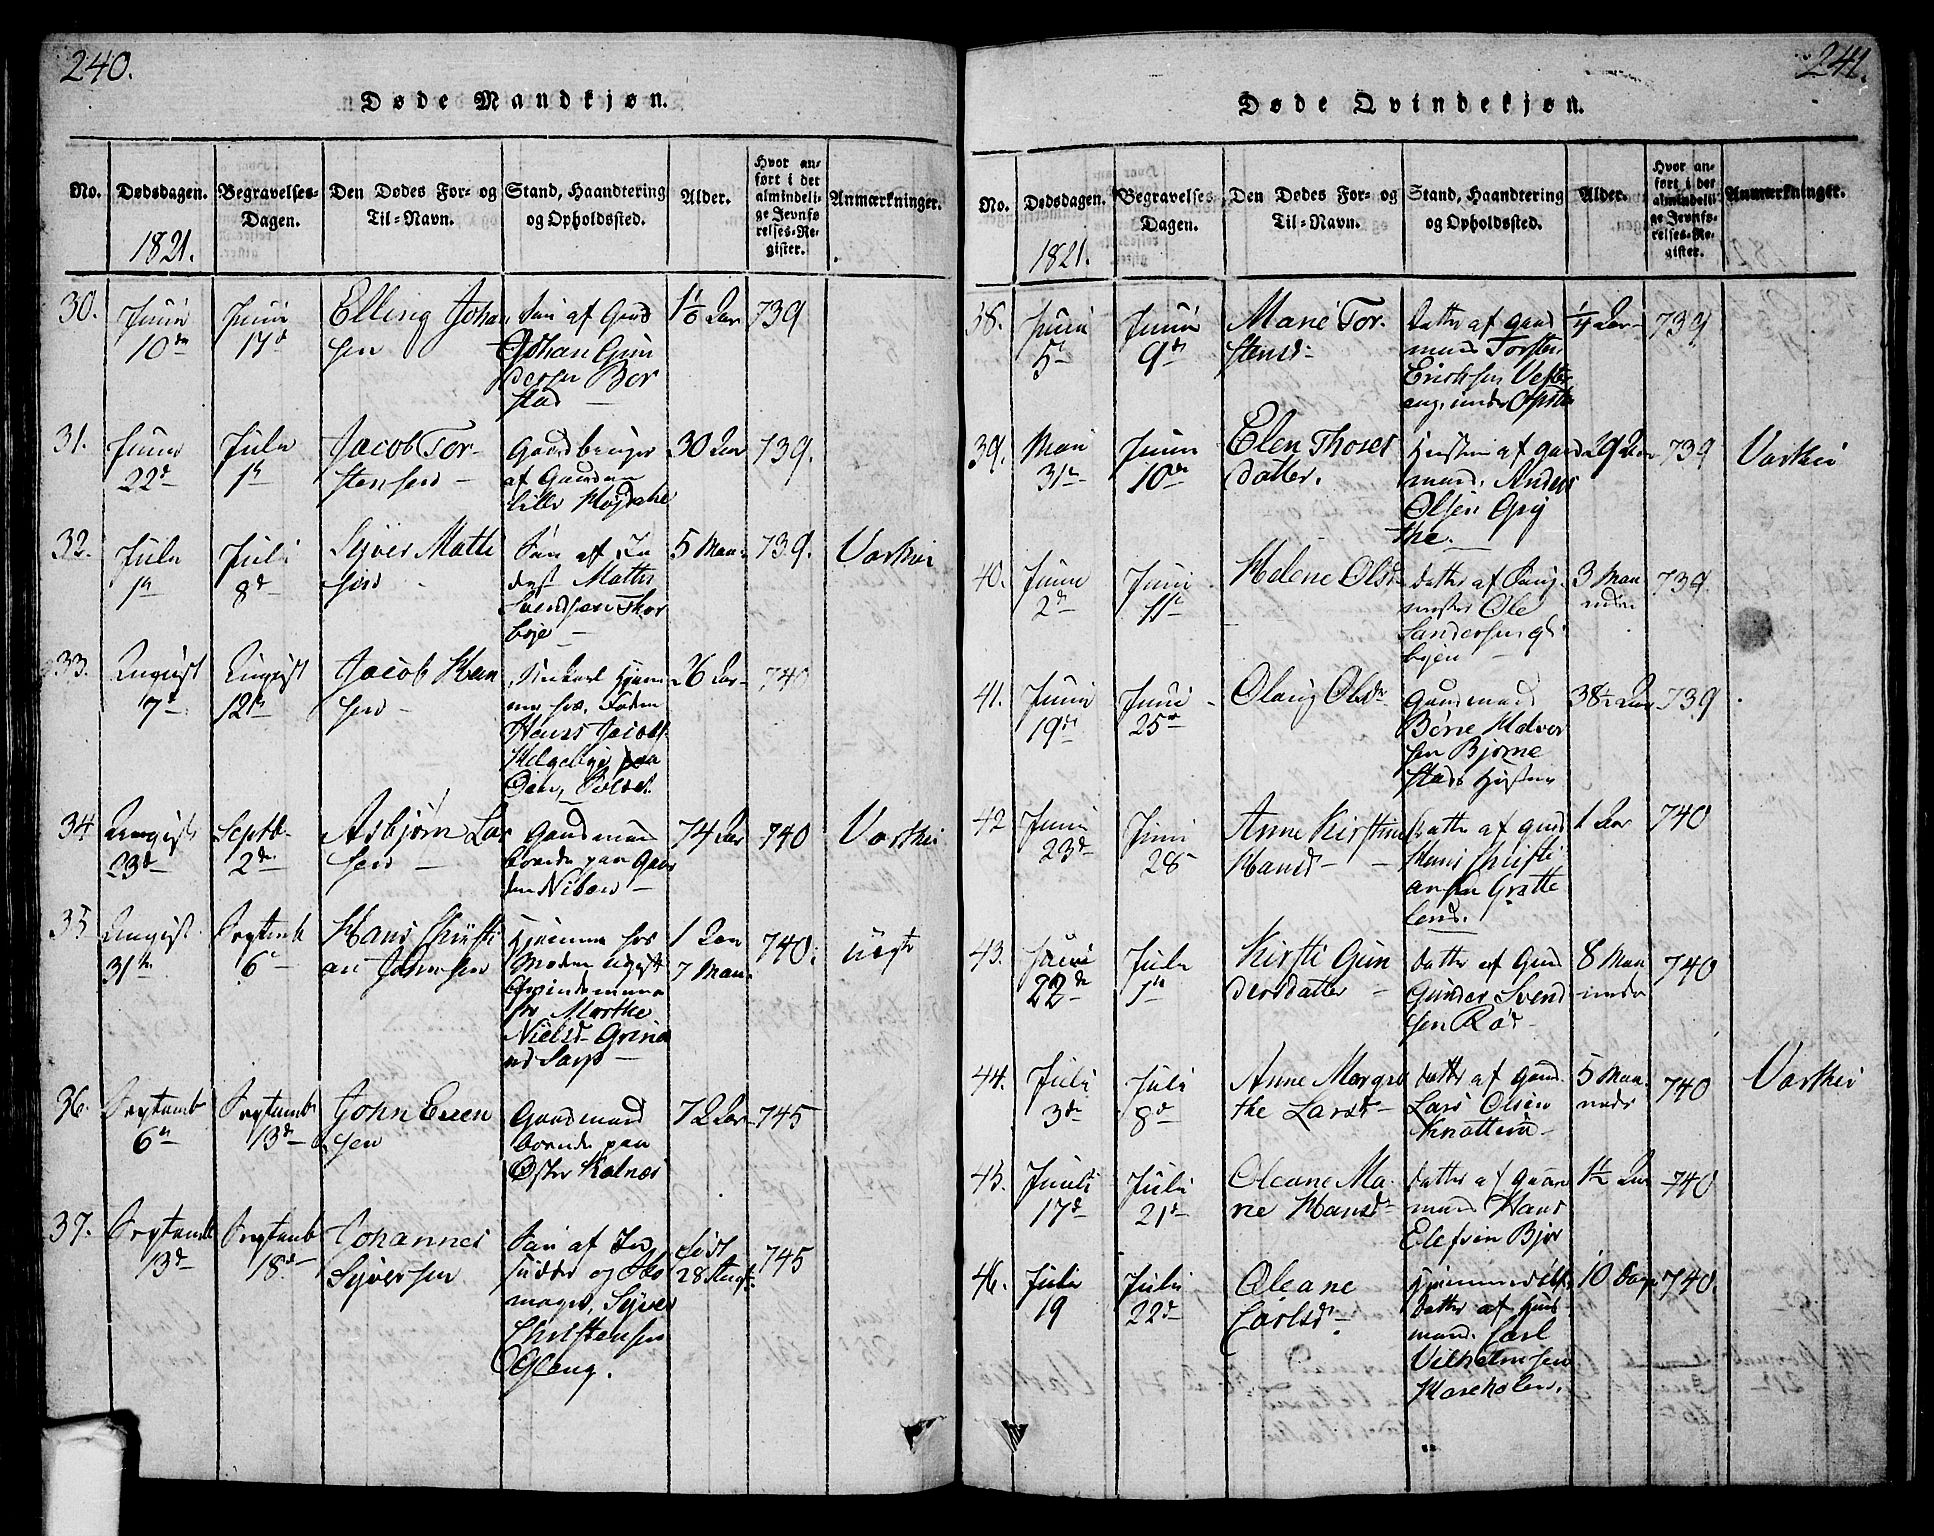 240.
Døde Mandkjøn.
No.
Dødsdagen.
1821.
Begravelses-
Dagen.
Den Dødes For- og
Til=Navn.
Stand, Haandtering
og Opholdssted.
Alder.
Hvor an-
ført i det
almindeli-
ge Jevnfø
relses-Re-
gister.
Anmærkninger.
30.
Junii
10de
Junii
17d
Elling Johan
sen
Søn af Gaard
Johan Gun
dersen Bor
stad
739
31.
Junii
22d
Julii
Jacob Tor-
stensen
af Gaarden
Lille
30 Aar
739.
32.
Julii
Julii
8d
Syver Matti
sen
Søn af In
derst Mattis
Svendsen Thor
bye
5 Maan.
739.
33.
August
7d
August
12te
Jacob Han
sen
Hans Jacobs.
Helgebye paa
26 Aar
740
34
August
23d
Septb.
2de
Asbjørn Lar
sen
Gaardmand
boende paa Gaar
den
74 Aar
740
35
August
31te
Septemb
6
Hans Christi
an Jensen
Hjemme hos
Moderen
for Marthe
Nielsd.
1 Aar
7 Maan.
740.
uægte
36.
Septemb
6
Septemb
13d
John Even
sen
Gaardmand
boende paa
Øster Kalnes
72 Aar
745
37.
Septemb
13d
Septemb
18d
Johannes
Syversen
Søn af In
sidder og Sko
mager, Syver
Christensen
Gleng.
født
28 August
745
241.
Døde Qvindekjøn.
No.
Dødsdagen.
1821.
Begravelses
Dagen.
Den Dødes For- og
Til=Navn.
Stand, Haandtering
og Opholdssted.
Alder.
Hvor an-
ført i det
almindeli
ge Jevnfø-
relses-Re-
gister.
Anmærkninger.
38.
Junii
5
Junii
9d
Marie Tor-
stensd
Datter af Gaard
mand Torsten
Eriksen Vester
eng, under
739
39.
Maii
31
Junii
10de
Elen Thores
datter.
af Gaard
mand, Anders
Olsen
29 Aar
739
40.
Junii
2d
Junii
11
Helene Olsd
Datter af
Ole
Sandersen
3 Maa
neder
739.
41.
Junii
19d
Junii
25
Olaug Olsd
Gaardmand
Børre Halvor
sen Bjørne
stad Hustru
38½ Aar
739
42
Junii
23d
Junii
28
Anne Kirstine
Hansd
Datter af Gaard
Hans Christi
ansen Gratte
lend.
1 Aar
740
43.
Junii
22de
Julii
Kirsti Gun
dersdatter
Datter af Gaard
Gunder Svend
sen Rød
8 Maa
neder
740
44.
Julii
3d
Julii
8d
Anne Margre
the Larsd
Datter af Gaard
Lars Olsen
Knatterud
5 Maa
neder
740
45.
Julii
17d
Julii
21d
Oleane Ma-
rie Hansd
Datter af Gaard
mand Hans
Elefsen Bjør
1½ Aar
740
46.
Julii
19
Julii
22d
Oleane
Carlsd
Datter af Huus
mand. Carl
Vilhelmsen
Hareholen.
10 Dage
740.